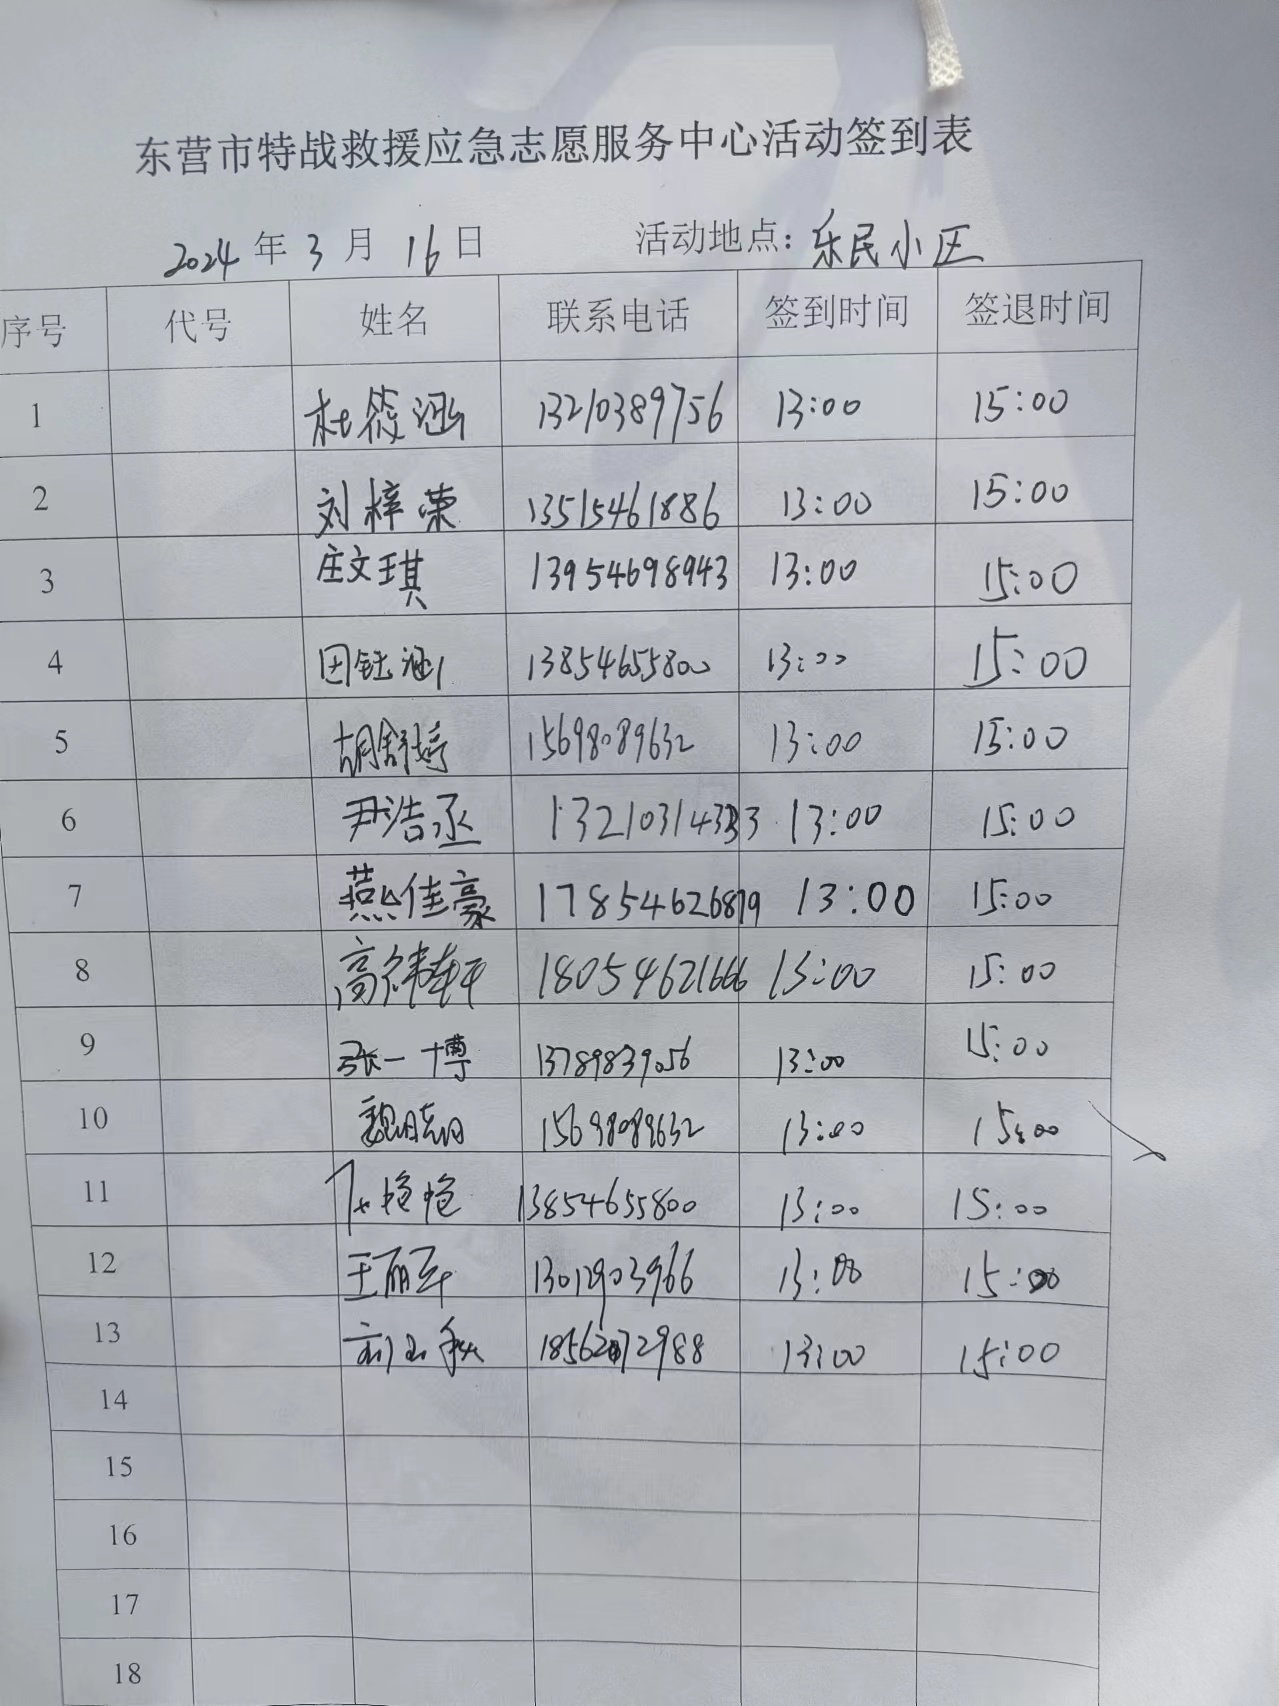 东营市特战救援应急志愿服务中心活动签到表
2024年3月16日 活动地点：乐民小区
序号 代号 姓名 联系电话 签到时间 签退时间
1 杜筱涵 13210389756 13:00 15:00
2 刘梓荣 13515461886 13:00 15:00
3 庄文琪 13954698943 13:00 15:00
4 田钰涵 13854655800 13:00 15:00
5 胡舒婷 15698089632 13:00 15:00
6 尹浩丞 13210314333 13:00 15:00
7 燕佳豪 17854626879 13:00 15:00
8 高纬轩 18054621666 13:00 15:00
9 张一博 13789839056 13:00 15:00
10 15698089632 13:00 15:00
11 艳艳 13854655800 13:00 15:00
12 王丽军 13012903966 13:00 15:00
13 13:00 15:00
14
15
16
17
18